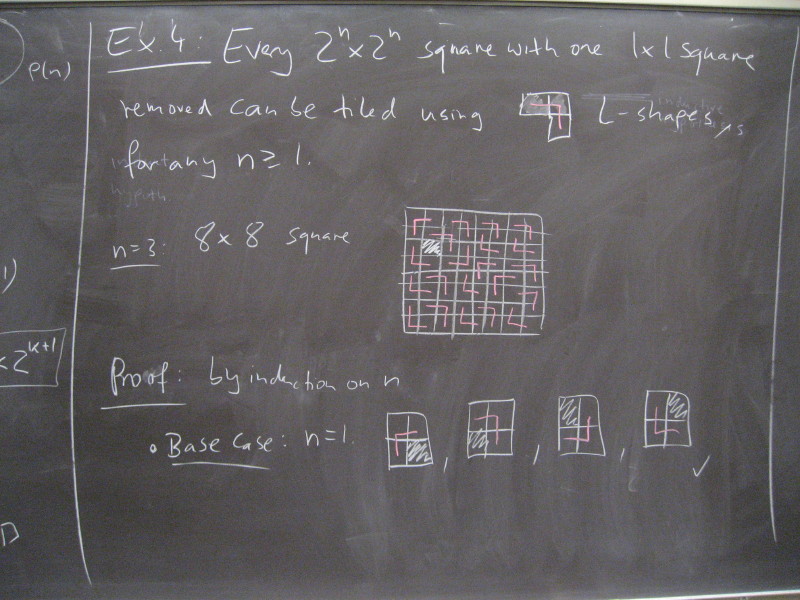 P(n)
Ex. 4: Every 2ⁿ×2ⁿ square with one 1×1 square
removed can be tiled using L-shapes,
for any n ≥ 1.
n=3: 8×8 square
1)
×2ᵏ⁺¹
Proof: by induction on n
• Base Case: n=1. , , , ✓